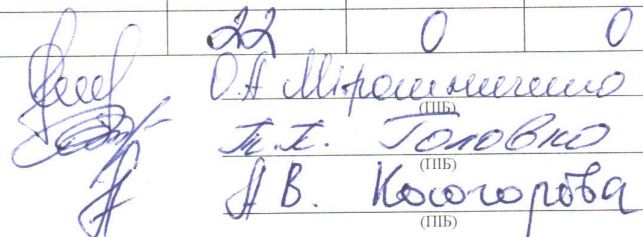 22 0 0
О.А Мірошниченко
(ПІБ)
Т.П. Головко
(ПІБ)
А В. Косогорова
(ПІБ)